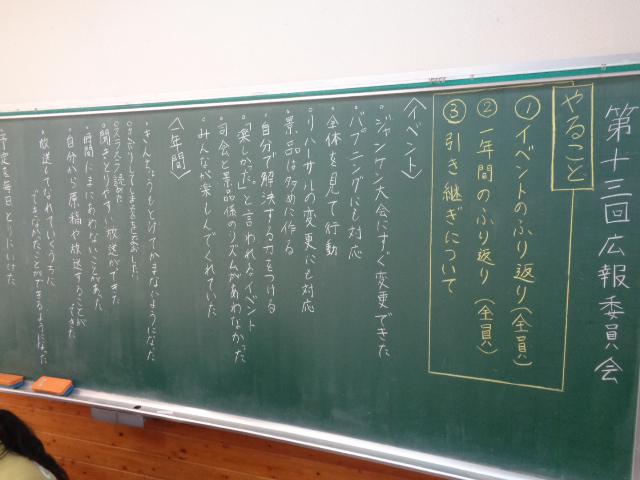 第十三回広報委員会
やること
①イベントのふり返り(全員)
②一年間のふり返り(全員)
③引き継ぎについて
〈イベント〉
・ジャンケン大会にすぐ変更できた
・ハプニングにも対応
・全体を見て行動
・リハーサルの変更にも対応
・景品は多めに作る
・自分で解決する力をつける
・「楽しかった」と言われるイベント
・司会と景品係のリズムがあわなかった
・みんなが楽しんでくれていた
〈一年間〉
・きんちょうもとけてかまないようになった
・スラスラ読めた
・聞きとりやすい放送ができた
・時間にまにあわないことがあった
・自分から原稿や放送することができた
・放送してなれていくうちに
できなかったことができるようになった